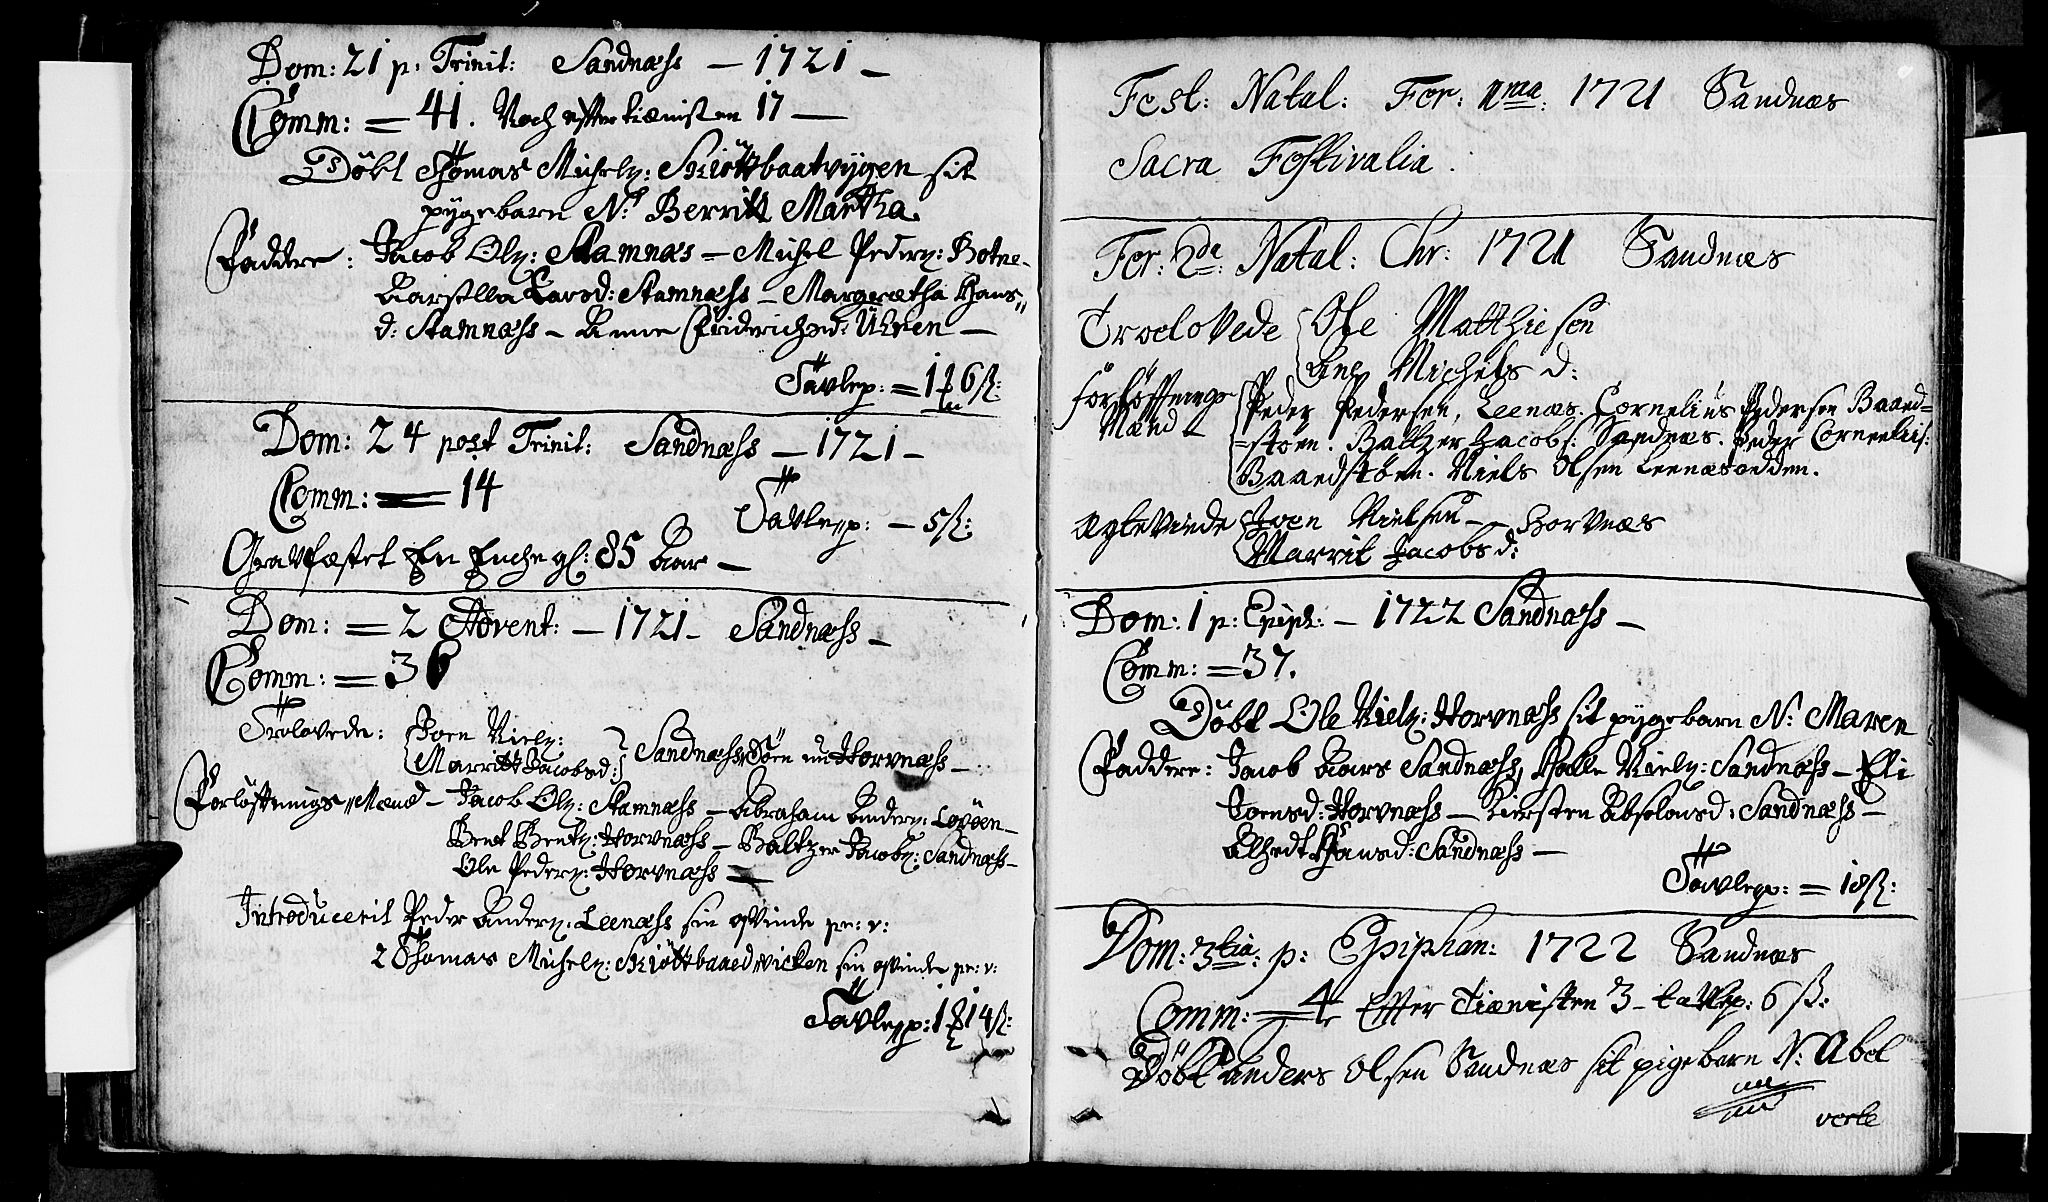 Dom: 21 p. Trinit: Sandnæss – 1721 –
Comm: = 41. Noch effter tiænisten 17 —
Døbt Thomas Michelz: Skiøttbaatvygen sit
pygebarn N: Berritt Martha.
Faddere: Jacob Olz: Stamnæs – Michel Pederz: Botne–
Larsd: Stamnæss – Margrætha Hans"
d: Stamnæss – Anne Friderichsd: –
Tavlep: = 1 ꝑ 6 ß:
Dom: 24 post Trinit: Sandnæss – 1721 –
Comm: = 14
Tavlepp: – 5 ß:
Gravfæstet En Enche gl: 85 Aar –
Dom: = 2 Advent: – 1721 – Sandnæss –
Comm: = 36
Trolovede: Joen Nielz:
Marritt Jacobsd: Sandnæss Søen un Horvnæss –
Forløftnings Mænd – Jacob Olz: Stamnæss – Abraham Anderz: Løvøen –
Bent Bentz: Horvnæss – Baltzer Jacobz: Sandnæss –
Ole Pederz: Horvnæss =
Introducerit Peder Anderz: Leenæss sin qvinde pr: v:
2 Thomas Michelz: Skiøttbaaedvicken sin qvinde pr: v:
Tavlepp: 1 ꝑ 14 ß:
Fest: Natal: Fer: 1ma: 1721 Sandnæs
Sacra Festivalia.
Fer: 2de: Natal: Chr: 1721 Sandnæs
Troelovede Ole Matthiesen
Ane Michels d:
Forløftnings Peder Pedersen, Leenæs. Cornelius Pedersen Baaed=
Mænd =støen. Baltzer Jacobs: Sandnæs. Peder Cornelius:
Baaedstøen. Niels Olsen Leenæsodden.
Ægtevinde Joen Nielsen – Horvnæs
Marrit Jacobsd:
Dom: 1 p: Epiph: – 1722 Sandnæss –
Comm: = 37.
Døbt Ole Nielz: Horvnæss sit pygebarn N: Maren
Faddere: Jacob Aars Sandnæss, Nielz: Sandnæss – Eli
Joensd: Horvnæss – Kirsten Absolonsd: Sandnæss –
Alhedt Hansd: Sandnæss –
Tavlepp: = 18 ß:
Dom: 3tia: p: Epiphan: 1722 Sandnæs
Comm: = 4 Effter Tiænisten 3 – tavlp: 6 ß:
Døbt anders Olsen Sandnæs sit pigebarn N: Abel
verte